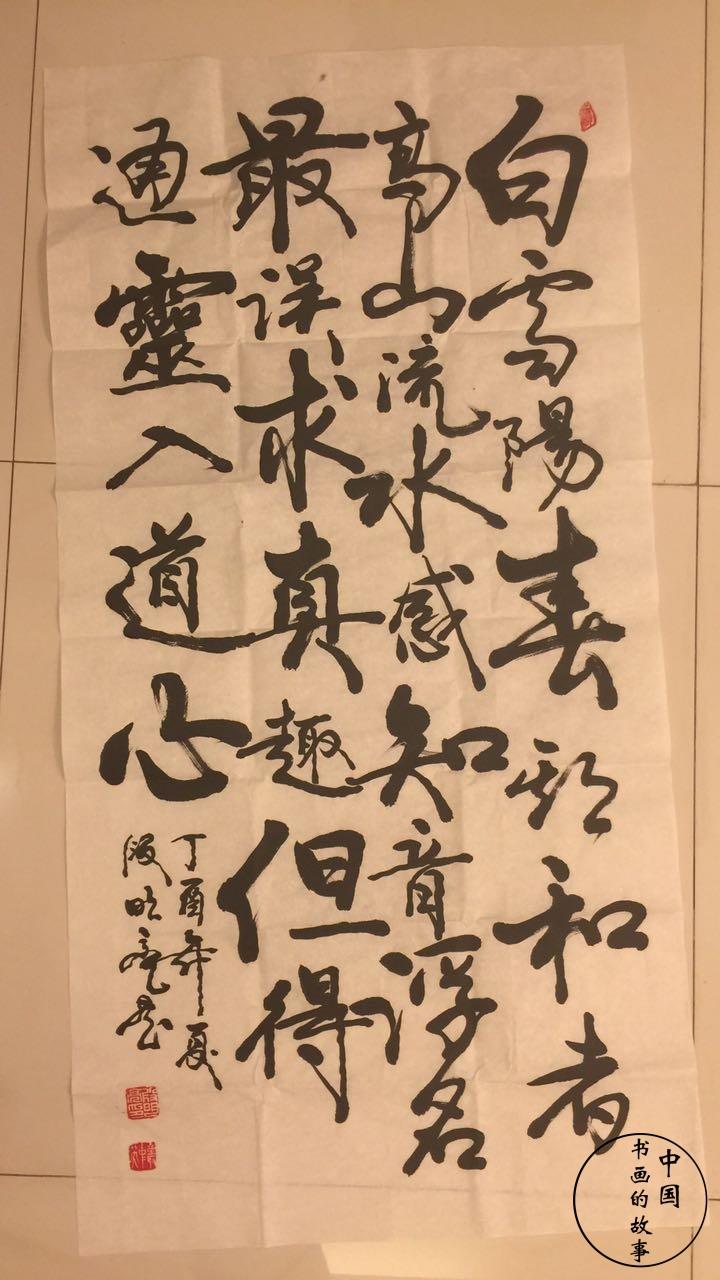 白雪陽春和者
高山流水感知音浮名
最误求真趣但得
通靈入道心
丁酉年夏
段明亮书
中国
书画的故事